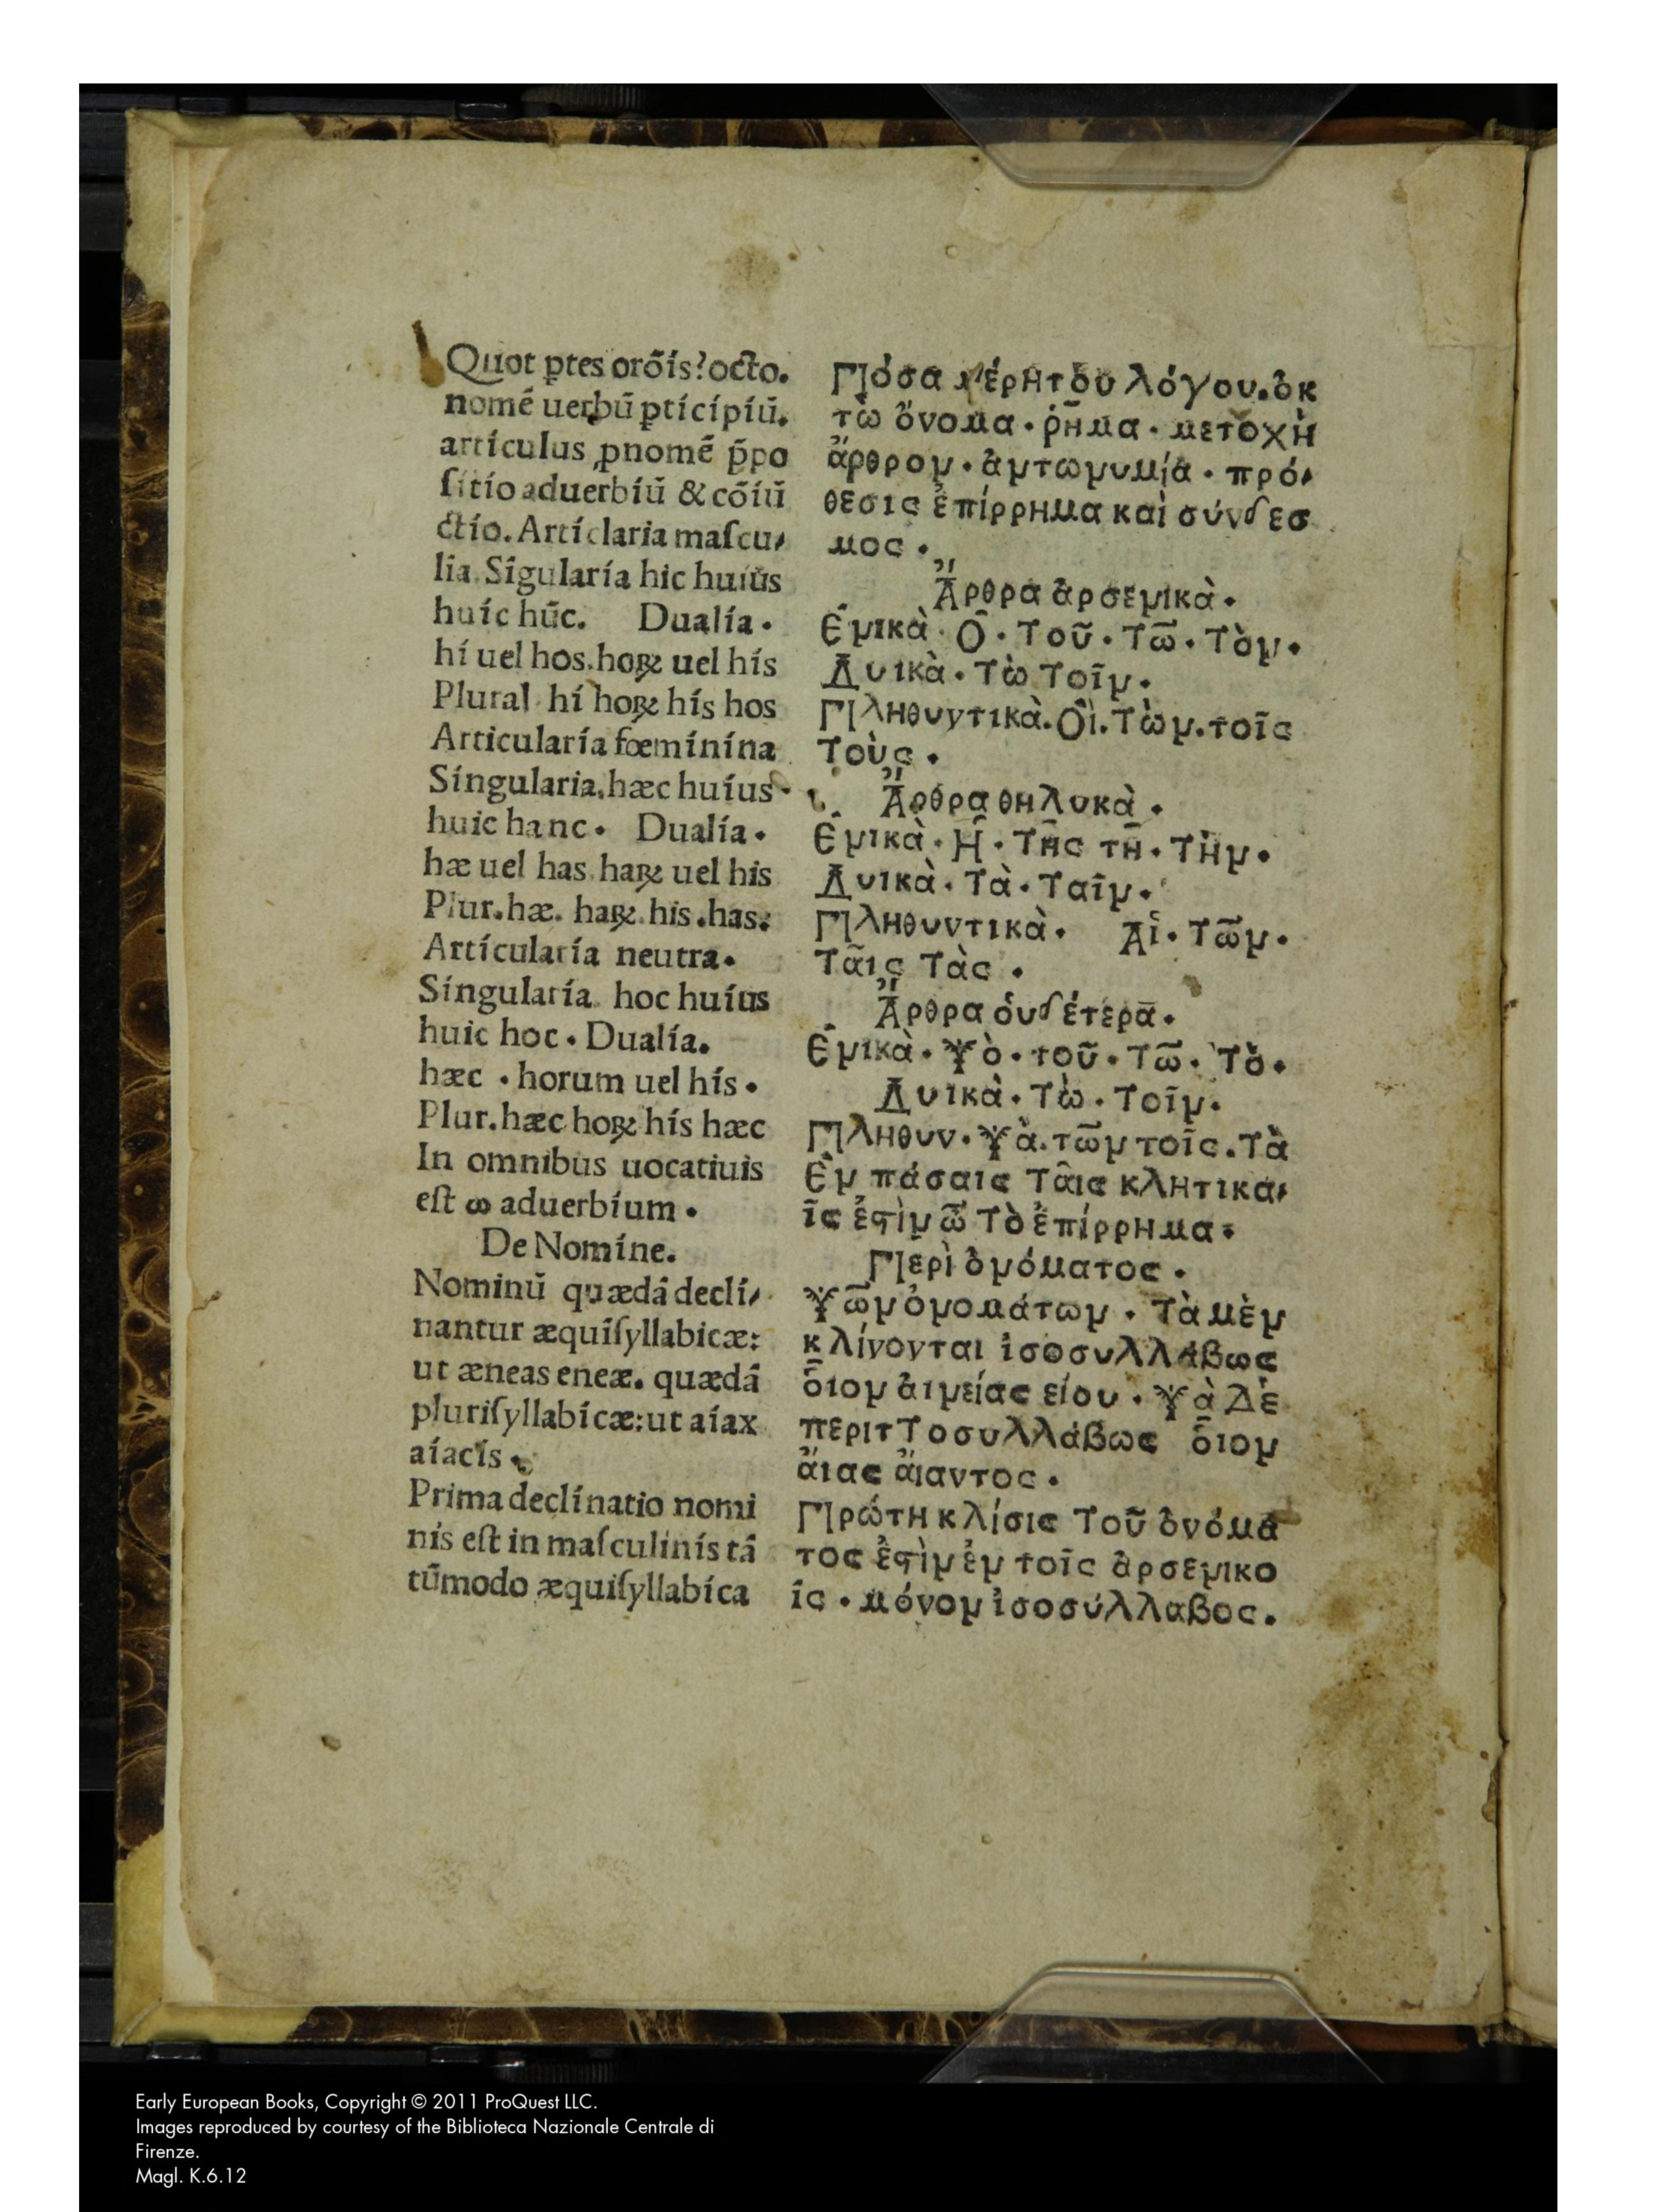 Quot ꝑtes orõis? octo.
nomẽ uerbũ ꝑticipiũ.
articulus ꝓnomẽ p̃po
ſitio aduerbiũ & cõiũ
ctio. Articlaria maſcu⸗
lia. Sĩgularia hic huiũs
huic hũc. Dualia.
hi uel hos. hoꝝ uel his
Plural hi hoꝝ his hos
Articularia fœminina
Singularia. hæc huius
huic hanc. Dualia.
hæ uel has. haꝝ uel his
Plur. hæ. haꝝ. his. has:
Articularia neutra.
Singularia hoc huius
huic hoc. Dualia.
hæc. horum uel his.
Plur. hæc hoꝝ his hæc
In omnibus uocatiuis
eſt ω aduerbium.
De Nomine.
Nominũ quædã decli⸗
nantur æquiſyllabicæ:
ut æneas eneæ. quædã
pluriſyllabicæ: ut aiax
aiacis.
Prima declinatio nomi
nis eſt in maſculinis tã
tũmodo æquiſyllabica
Πόσα μέρη τὸυ λόγου. ὀκ
τὼ ὄνομα. ῥῆμα. μετοχὴ
ἄρθρον. ἀντωνυμία. πρό⸗
θεσις ἐπίρρημα καὶ σύνδεσ
μος.
Ἄρθρα ἀρσενικὰ.
Ἑνικὰ. Ὁ. Τοῦ. Τῶ. Τὸν.
Δυικὰ. Τὼ Τοῖν.
Πληθυντικὰ. Οἱ. Τὼν. τοῖς
Τοὺς.
Ἄρθρα θηλυκὰ.
Ἑνικὰ. Ἡ. Τῆς τῆ. Τὴν.
Δυικὰ. Τὰ. Ταῖν.
Πληθυντικὰ. Αἱ. Τῶν.
Τᾶις Τὰς.
Ἄρθρα ὀυδέτερα.
Ἑνικὰ. Τὸ. τοῦ. Τῶ. Τὸ.
Δυικὰ. Τὼ. Τοῖν.
Πληθυν. Τὰ. τῶν τοῖς. Τὰ
Ἐν πάσαις Τᾶις κλητικα⸗
ῖς ἐϛὶν ὦ Τὸ ἐπίρρημα.
Περὶ ὀνόματος.
Τῶν ὀνομάτων. Τὰ μὲν
κλίνονται ἰσοσυλλάβως
ὅιον ἀινείας είου. Τὰ Δὲ
περιτΤοσυλλάβως ὅιον
ἄιας ἄιαντος.
Πρώτη κλίσις Τοῦ ὀνόμα
τος ἐϛὶν ἐν τοῖς ἀρσενικο
ῖς. μόνον ἰσοσύλλαβος.
Early European Books, Copyright © 2011 ProQuest LLC.
Images reproduced by courtesy of the Biblioteca Nazionale Centrale di
Firenze.
Magl. K.6.12